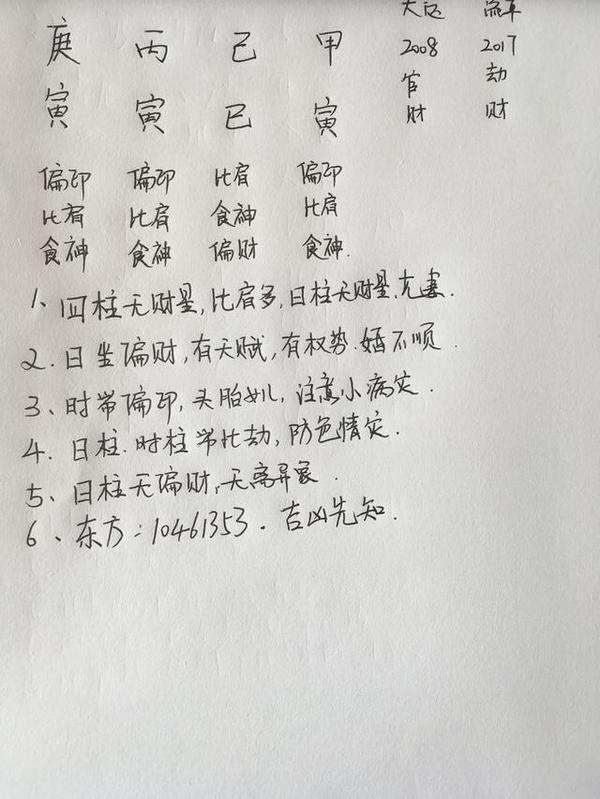 大运 流年
庚 丙 己 甲 2008 2017
官 劫
寅 寅 巳 寅 财 财
偏印 偏印 比肩 偏印
比肩 比肩 食神 比肩
食神 食神 偏财 食神.
1、四柱无财星,比肩多,日柱无财星.克妻.
2.日坐偏财,有天赋,有权势.婚不顺.
3、时带偏印,头胎女儿,注意小病灾.
4、日柱.时柱带比劫,防色情灾.
5、日柱无偏财,无离异象.
6、东方:10461353.吉凶先知.